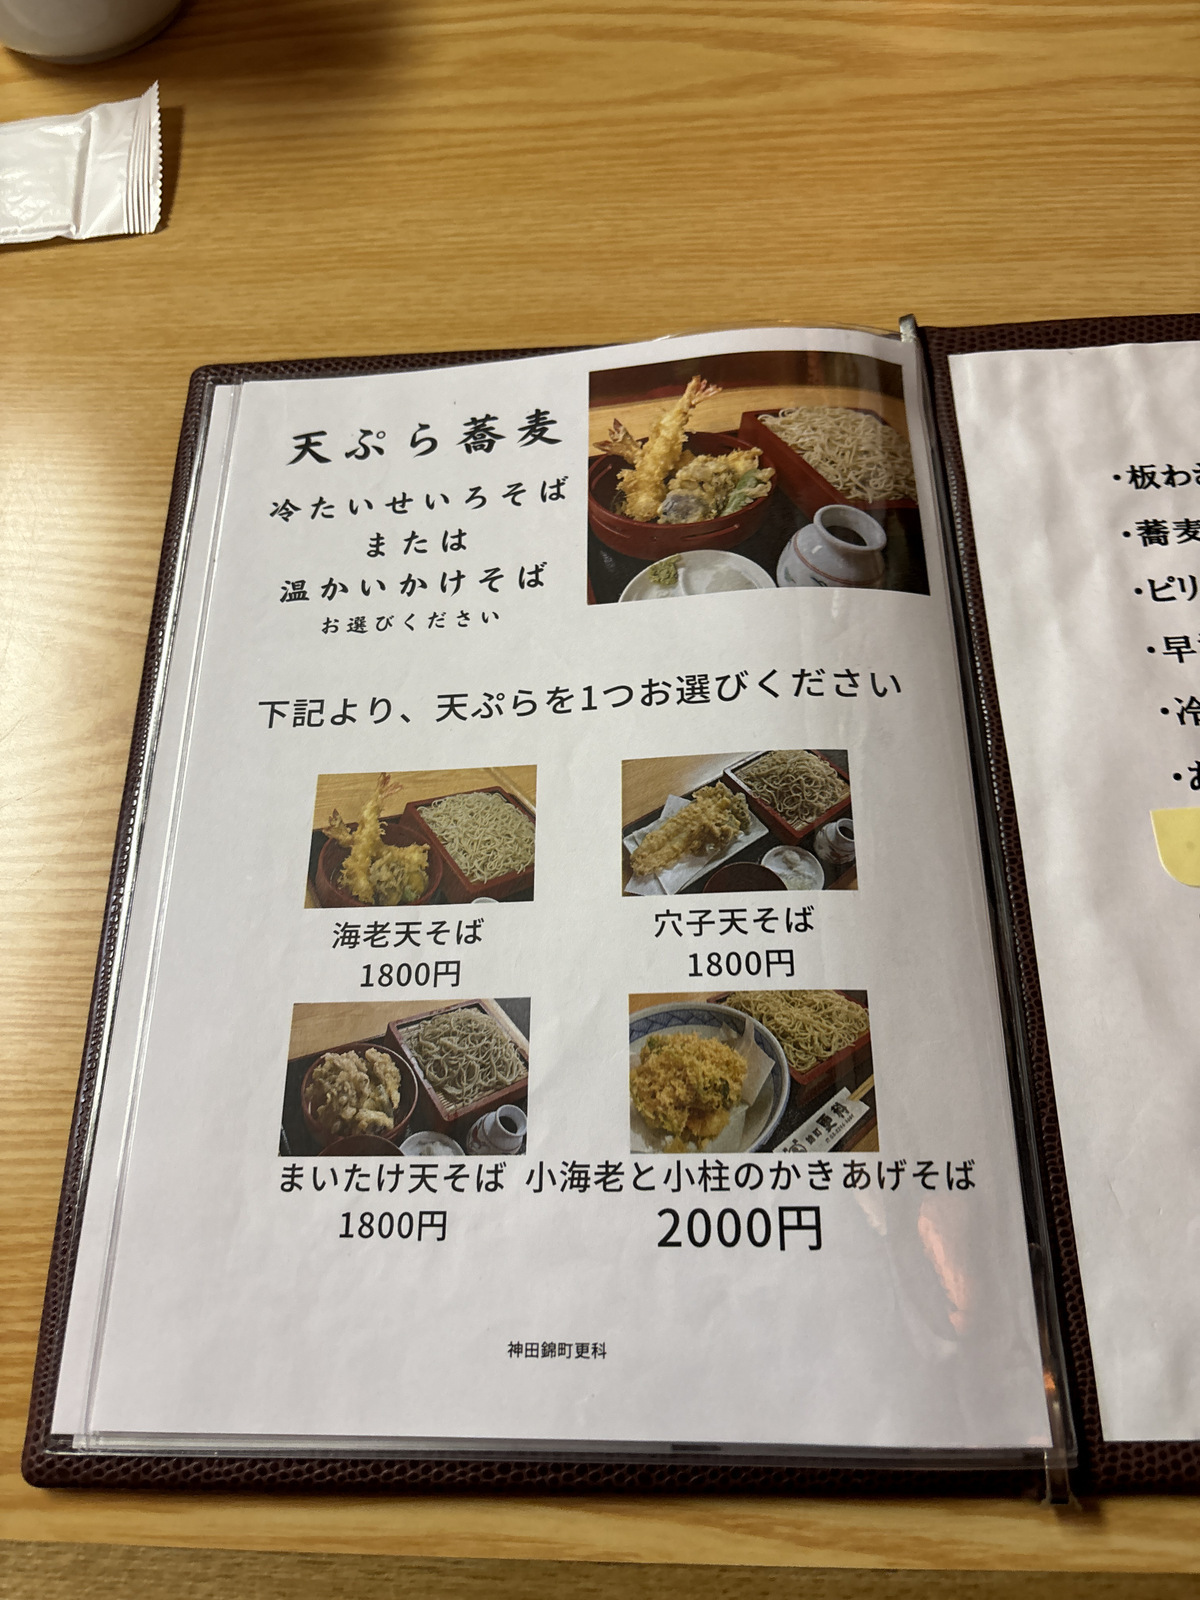 天ぷら蕎麦
冷たいせいろそば
または
温かいかけそば
お選びください
下記より、天ぷらを1つお選びください
海老天そば
1800円
穴子天そば
1800円
まいたけ天そば
1800円
小海老と小柱のかきあげそば
2000円
更科
神田錦町更科
・板わ
・蕎麦
・ピリ
・早
・冷
・お